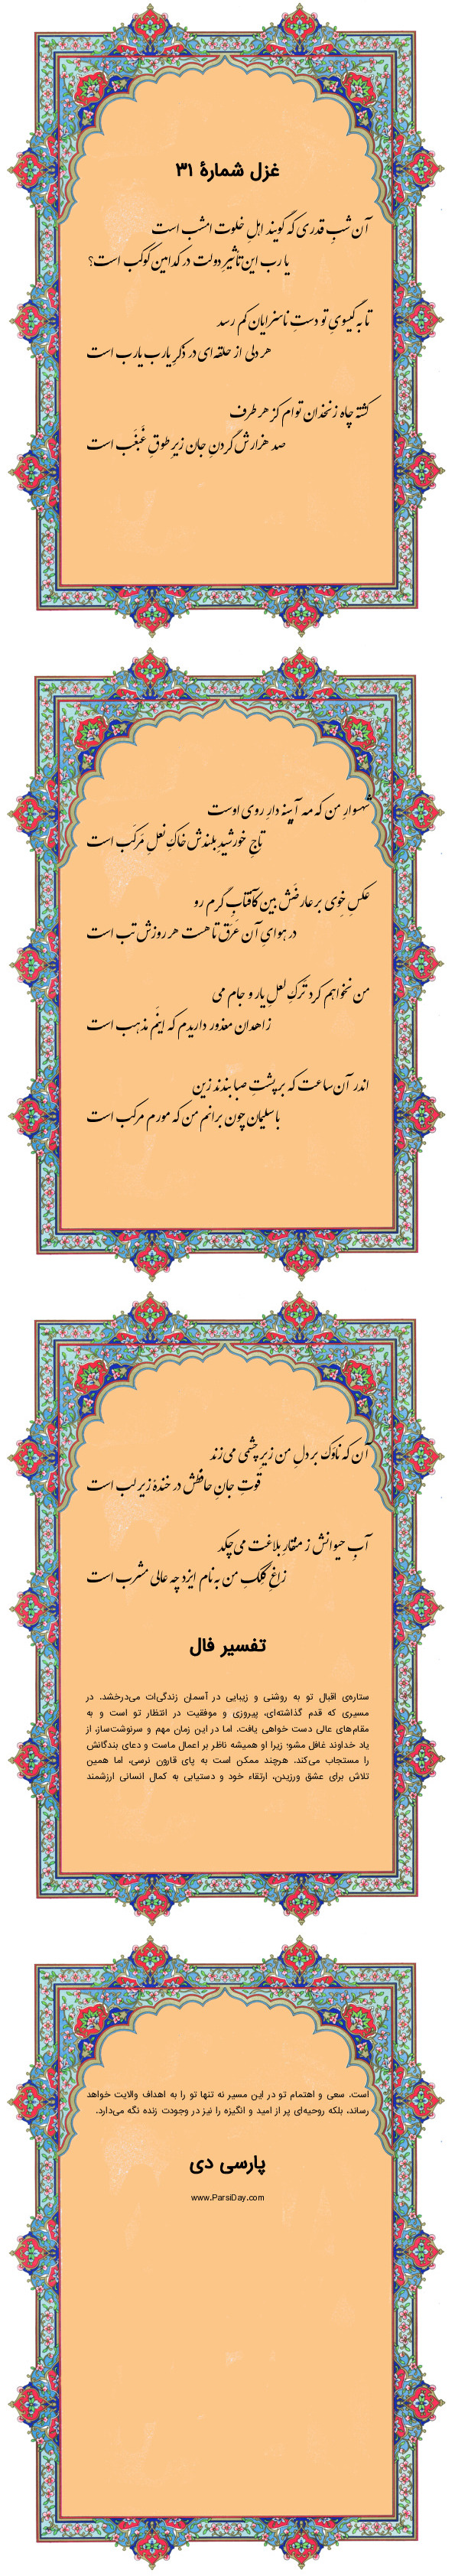 غزل شمارهٔ ۳۱
آن شبِ قدری که گویند اهلِ خلوت امشب است
یا رب این تأثیرِ دولت در کدامین کوکب است؟
تا به گیسویِ تو دستِ ناسزایان کم رسد
هر دلی از حلقه‌ای در ذکرِ یارب یارب است
کشته چاه زنخدان توام کز هر طرف
صد هزارش گردنِ جان زیرِ طوقِ غَبغَب است
شهسوارِ من که مه آیینه دارِ روی اوست
تاجِ خورشیدِ بلندش خاکِ نعلِ مَرکَب است
عکسِ خِوی بر عارضَش بین کآفتابِ گرم رو
در هوایِ آن عَرَق تا هست هر روزش تب است
من نخواهم کرد تَرکِ لعلِ یار و جام می
زاهدان معذور داریدم که اینَم مذهب است
اندر آن ساعت که بر پشتِ صبا بندند زین
با سلیمان چون برانم من که مورم مرکب است
آن که ناوَک بر دلِ من زیرِ چشمی می‌زند
قوتِ جانِ حافظش در خندهٔ زیر لب است
آبِ حیوانش ز منقارِ بلاغت می‌چکد
زاغِ کِلکِ من به نام ایزد چه عالی مشرب است
تفسیر فال
ستاره‌ی اقبال تو به روشنی و زیبایی در آسمان زندگی‌ات می‌درخشد. در
مسیری که قدم گذاشته‌ای، پیروزی و موفقیت در انتظار تو است و به
مقام‌های عالی دست خواهی یافت. اما در این زمان مهم و سرنوشت‌ساز، از
یاد خداوند غافل مشو؛ زیرا او همیشه ناظر بر اعمال ماست و دعای بندگانش
را مستجاب می‌کند. هرچند ممکن است به پای قارون نرسی، اما همین
تلاش برای عشق ورزیدن، ارتقاء خود و دستیابی به کمال انسانی ارزشمند
است. سعی و اهتمام تو در این مسیر نه تنها تو را به اهداف والایت خواهد
رساند، بلکه روحیه‌ای پر از امید و انگیزه را نیز در وجودت زنده نگه می‌دارد.
پارسی دی
www.ParsiDay.com